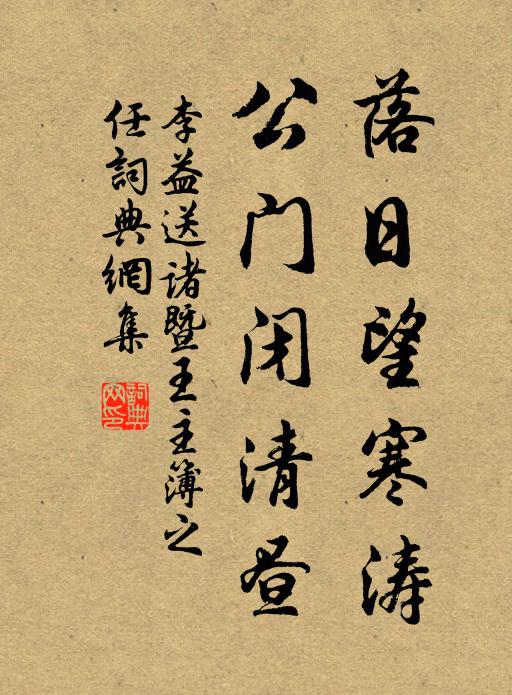 落日望寒涛
公门闭清昼
李益送诸暨王主簿之
任詞典網集
詞典網印